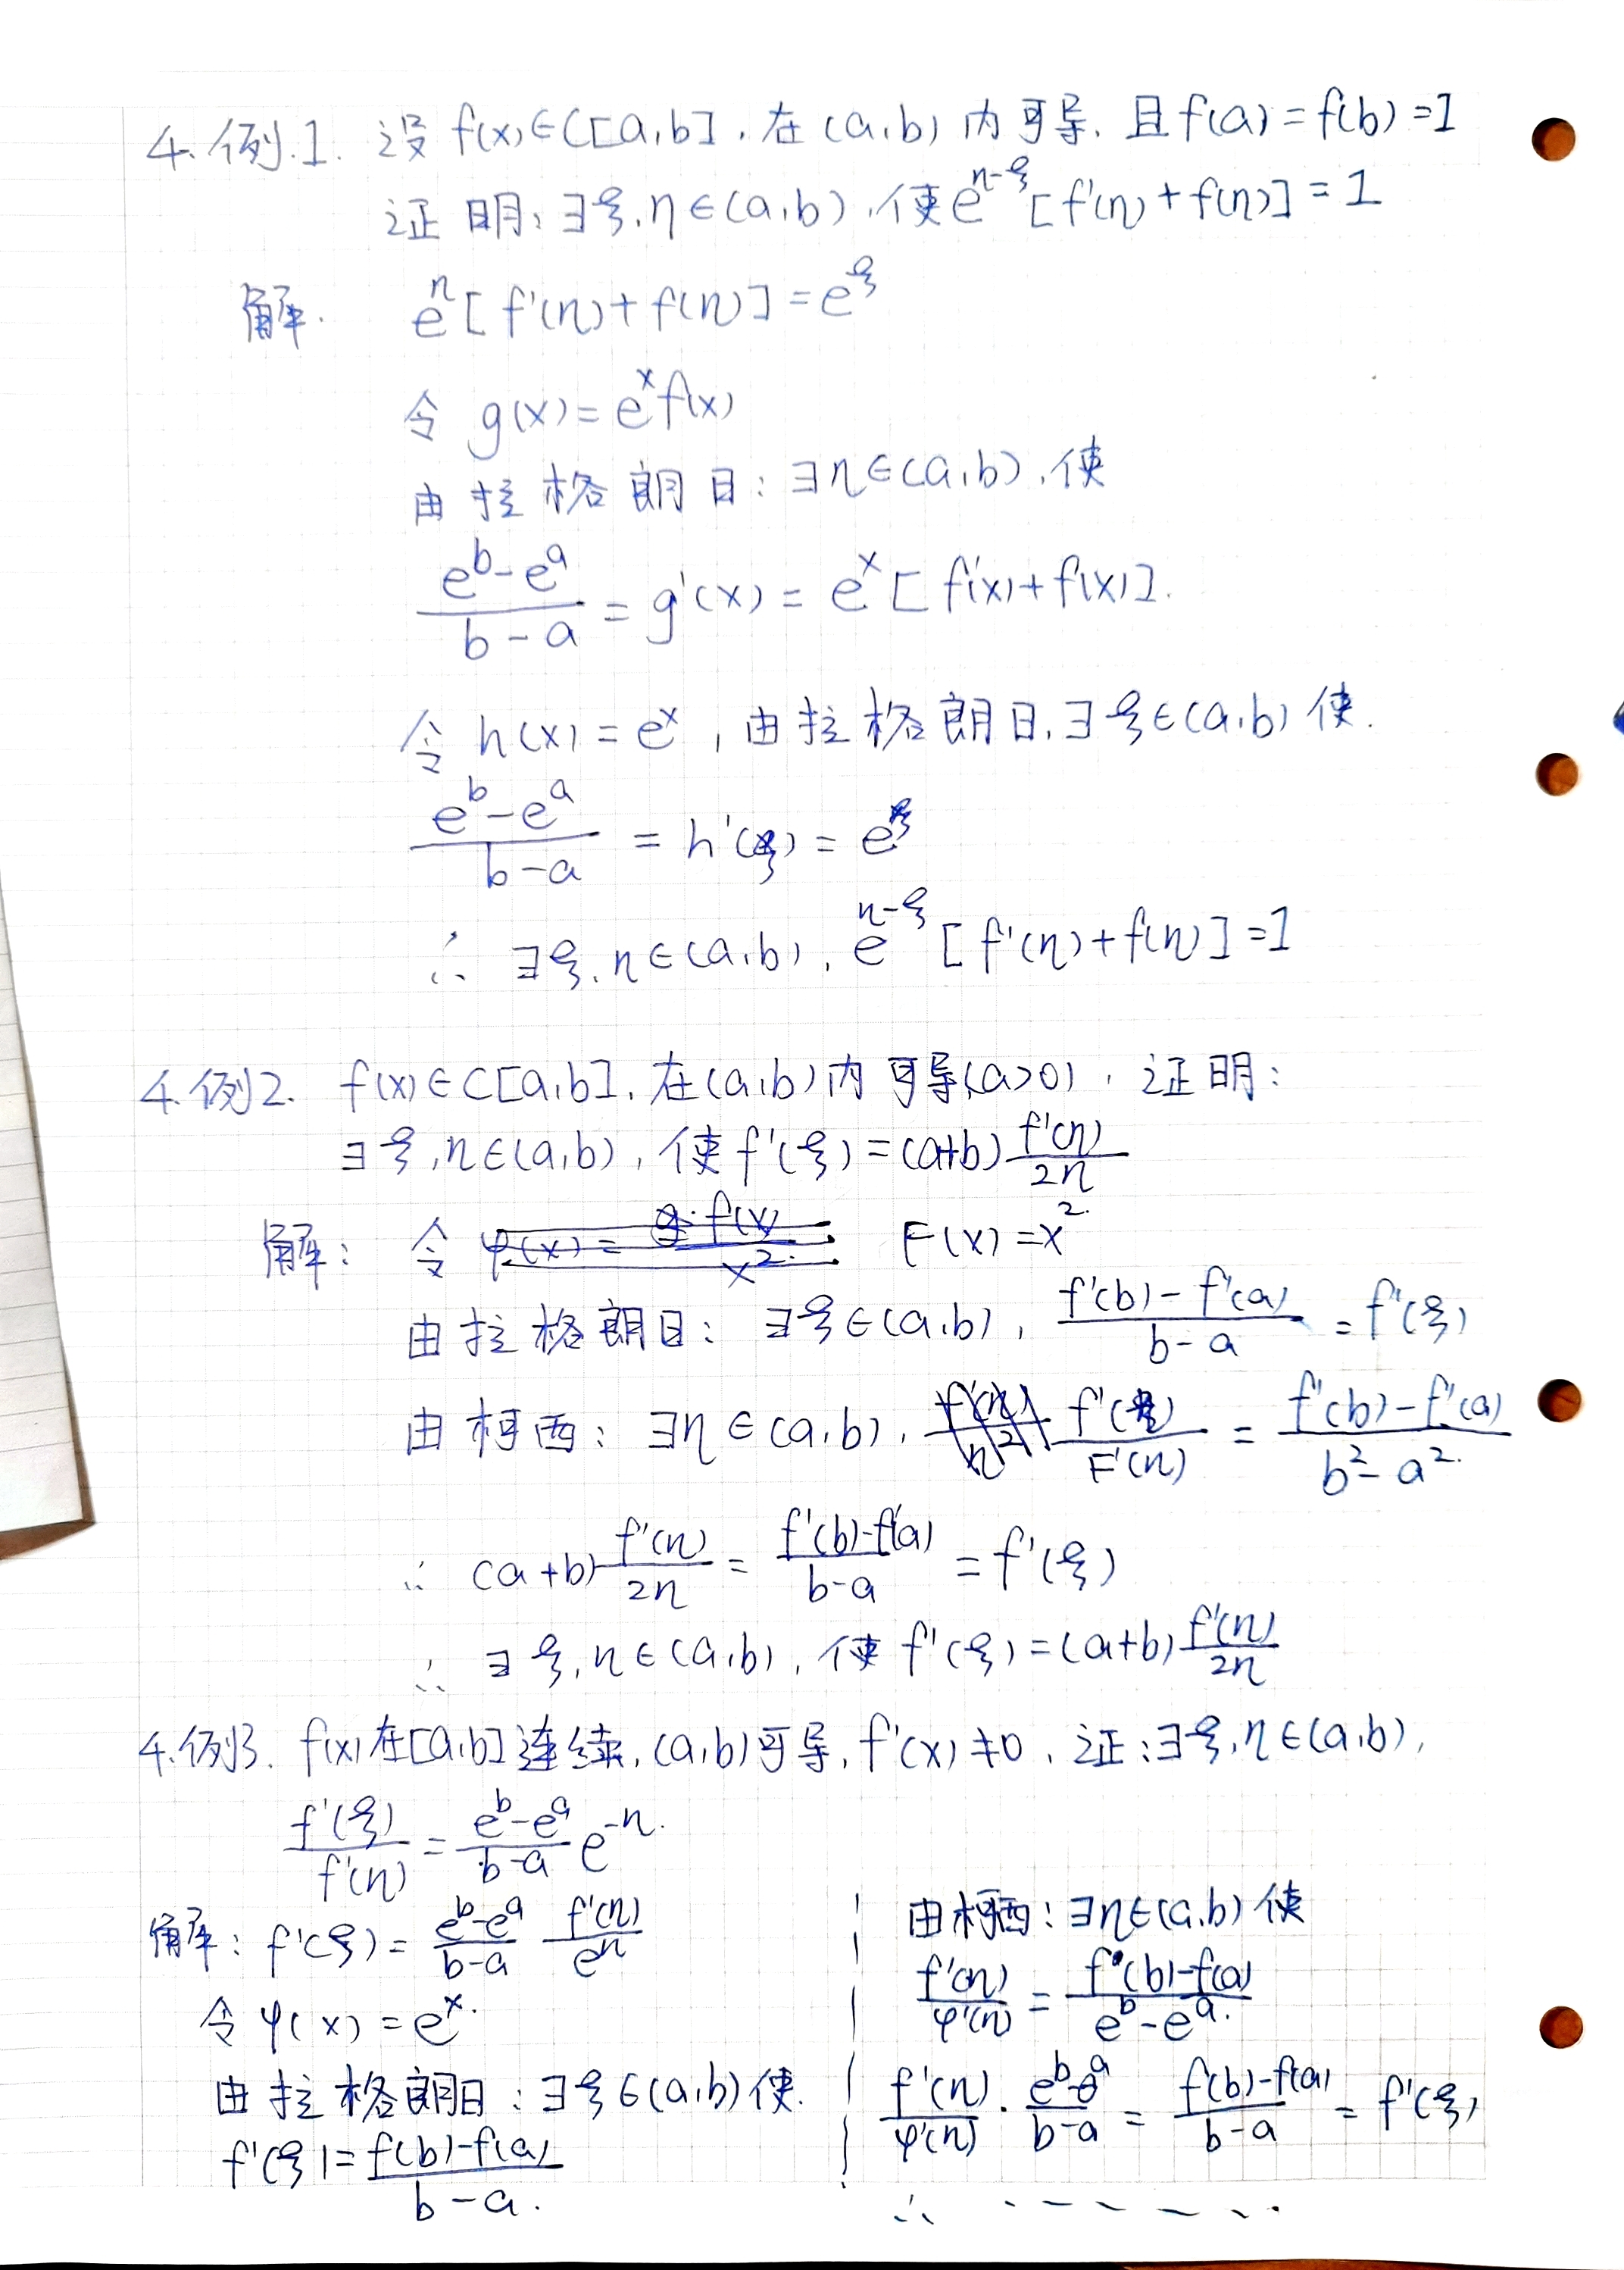 4.例.1. 设 f(x)∈C[a,b],在(a,b)内可导,且f(a)=f(b)=1
证明:∃ξ,η∈(a,b),使e^{η-ξ}[f'(η)+f(η)]=1
解. e^η[f'(η)+f(η)]=e^ξ
令 g(x)=e^x f(x)
由拉格朗日:∃η∈(a,b),使
\frac{e^b-e^a}{b-a}=g'(x)=e^x[f'(x)+f(x)].
令 h(x)=e^x,由拉格朗日,∃ξ∈(a,b)使.
\frac{e^b-e^a}{b-a}=h'(ξ)=e^ξ
∴ ∃ξ,η∈(a,b),e^{η-ξ}[f'(η)+f(η)]=1
4.例2. f(x)∈C[a,b],在(a,b)内可导(a>0),证明:
∃ξ,η∈(a,b),使f'(ξ)=(a+b)\frac{f'(η)}{2η}
解:令 F(x)=x^2.
由拉格朗日:∃ξ∈(a,b),\frac{f'(b)-f'(a)}{b-a}=f'(ξ)
由柯西:∃η∈(a,b),\frac{f'(η)}{F'(η)}=\frac{f'(b)-f'(a)}{b^2-a^2.}
∴ (a+b)\frac{f'(η)}{2η}=\frac{f'(b)-f'(a)}{b-a}=f'(ξ)
∴ ∃ξ,η∈(a,b),使f'(ξ)=(a+b)\frac{f'(η)}{2η}
4.例3. f(x)在[a,b]连续,(a,b)可导,f'(x)≠0,证:∃ξ,η∈(a,b),
\frac{f'(ξ)}{f'(η)}=\frac{e^b-e^a}{b-a}e^{-η}.
解:f'(ξ)=\frac{e^b-e^a}{b-a}\frac{f'(η)}{e^η}
令 φ(x)=e^x.
由拉格朗日:∃ξ∈(a,b)使.
f'(ξ)=\frac{f(b)-f(a)}{b-a.}
由柯西:∃η∈(a,b)使
\frac{f'(η)}{φ'(η)}=\frac{f(b)-f(a)}{e^b-e^a.}
\frac{f'(η)}{φ'(η)}·\frac{e^b-e^a}{b-a}=\frac{f(b)-f(a)}{b-a}=f'(ξ)
∴ ······